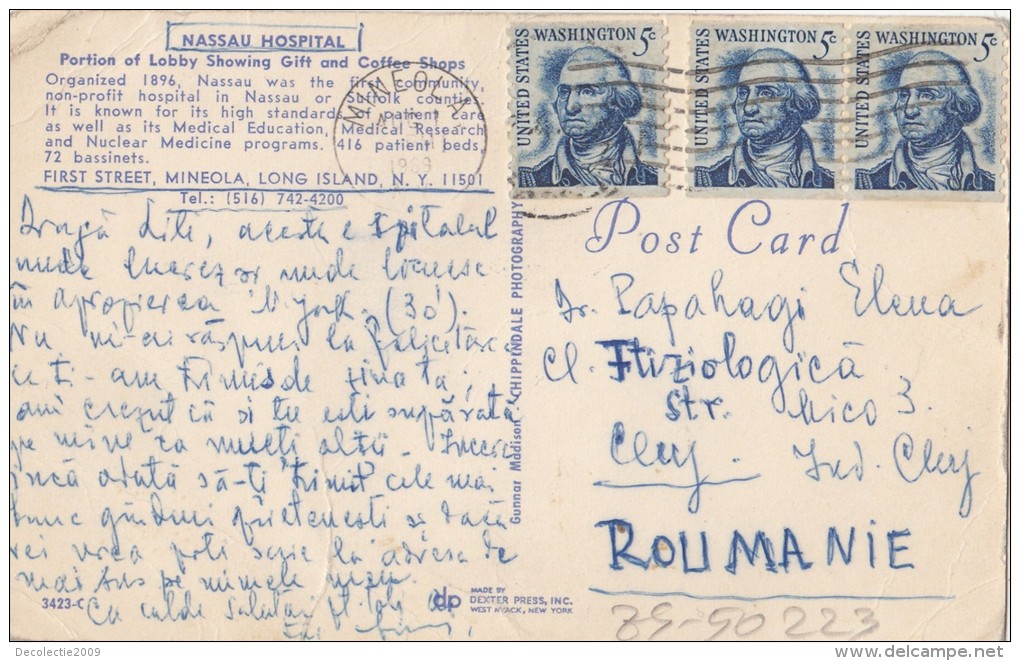 NASSAU HOSPITAL
Portion of Lobby Showing Gift and Coffee Shops
Organized 1896, Nassau was the first community,
non-profit hospital in Nassau or Suffolk counties.
It is known for its high standards of patient care
as well as its Medical Education, Medical Research
and Nuclear Medicine programs. 416 patient beds,
72 bassinets.
FIRST STREET, MINEOLA, LONG ISLAND, N. Y. 11501
Tel.: (516) 742-4200
MINEOLA
1969
UNITED STATES WASHINGTON 5c
UNITED STATES WASHINGTON 5c
UNITED STATES WASHINGTON 5c
Dragă Liti, acesta e spitalul
unde lucrez și unde locuiesc
în apropierea York. (30').
Nu mi-ai răspuns la felicitarea
ce ți-am trimis de ziua ta;
am crezut că și tu ești supărată
pe mine ca mulți alții.
încă odată să-ți trimit cele mai
bune gânduri prietenești și dacă
vei vrea poți scrie la adresa de
mai sus pe numele meu.
Cu calde salutări
3423-C
Gunnar Madison
CHIPPENDALE PHOTOGRAPHY
dp
MADE BY
DEXTER PRESS, INC.
WEST NYACK, NEW YORK
Post Card
Dr. Papahagi Elena
Cl. Ftiziologică
Str. Mico 3.
Cluj. Jud. Cluj
ROUMANIE
ZS-50223
Decolectie2009
delcampe.net